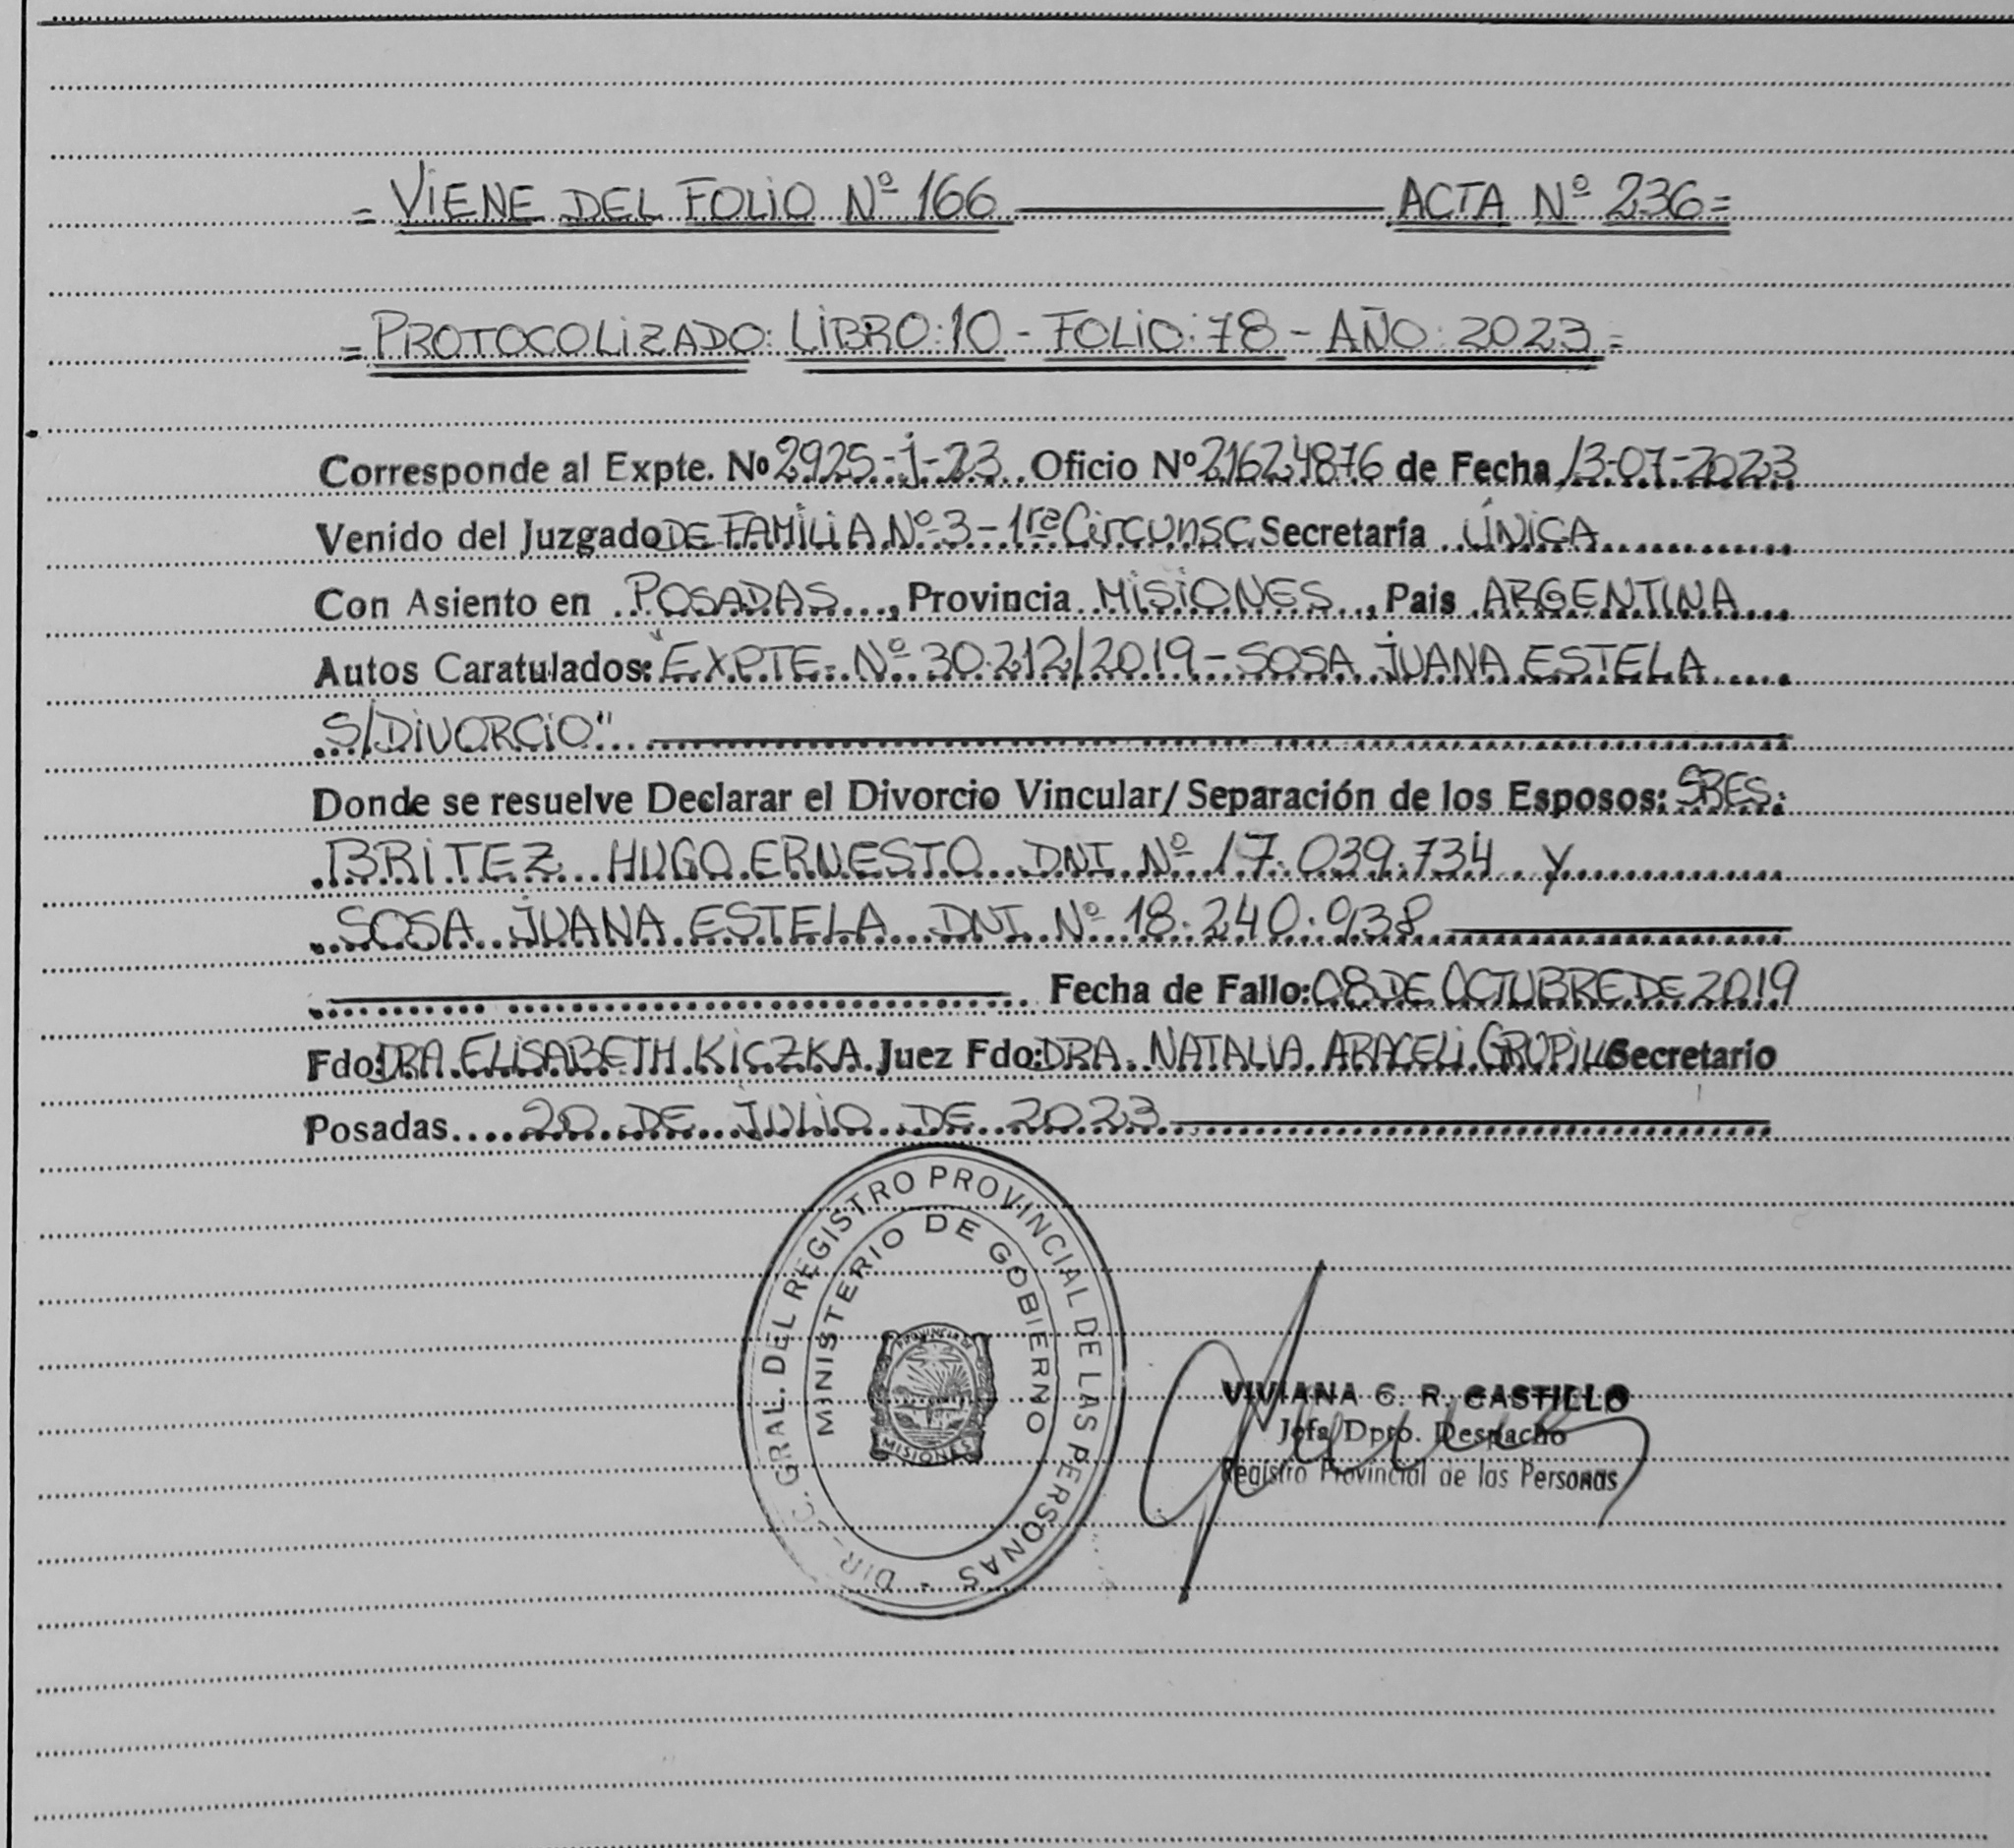 = VIENE DEL FOLIO Nº 166 ACTA Nº 236 =
= PROTOCOLIZADO: LIBRO: 10 - FOLIO: 78 - AÑO: 2023 =
Corresponde al Expte. Nº 2925-J-23 Oficio Nº 21624876 de Fecha 13-07-2023
Venido del Juzgado DE FAMILIA Nº 3 - 1ra Circunsc. Secretaría ÚNICA
Con Asiento en POSADAS, Provincia MISIONES, Pais ARGENTINA
Autos Caratulados: "EXPTE. Nº 30.212/2019 - SOSA JUANA ESTELA
S/DIVORCIO"
Donde se resuelve Declarar el Divorcio Vincular/Separación de los Esposos: SRES:
BRITEZ HUGO ERNESTO DNI Nº 17.039.734 y
SOSA JUANA ESTELA DNI Nº 18.240.938
Fecha de Fallo: 08 DE OCTUBRE DE 2019
Fdo: DRA. ELISABETH KICZKA Juez Fdo: DRA. NATALIA ARACELI Secretario
Posadas 20 DE JULIO DE 2023
DIR-CC. GRAL. DEL REGISTRO PROVINCIAL DE LAS PERSONAS -
MINISTERIO DE GOBIERNO
PROVINCIA DE
MISIONES
VIVIANA C. R. CASTILLO
Jefa Dpto. Despacho
Registro Provincial de las Personas